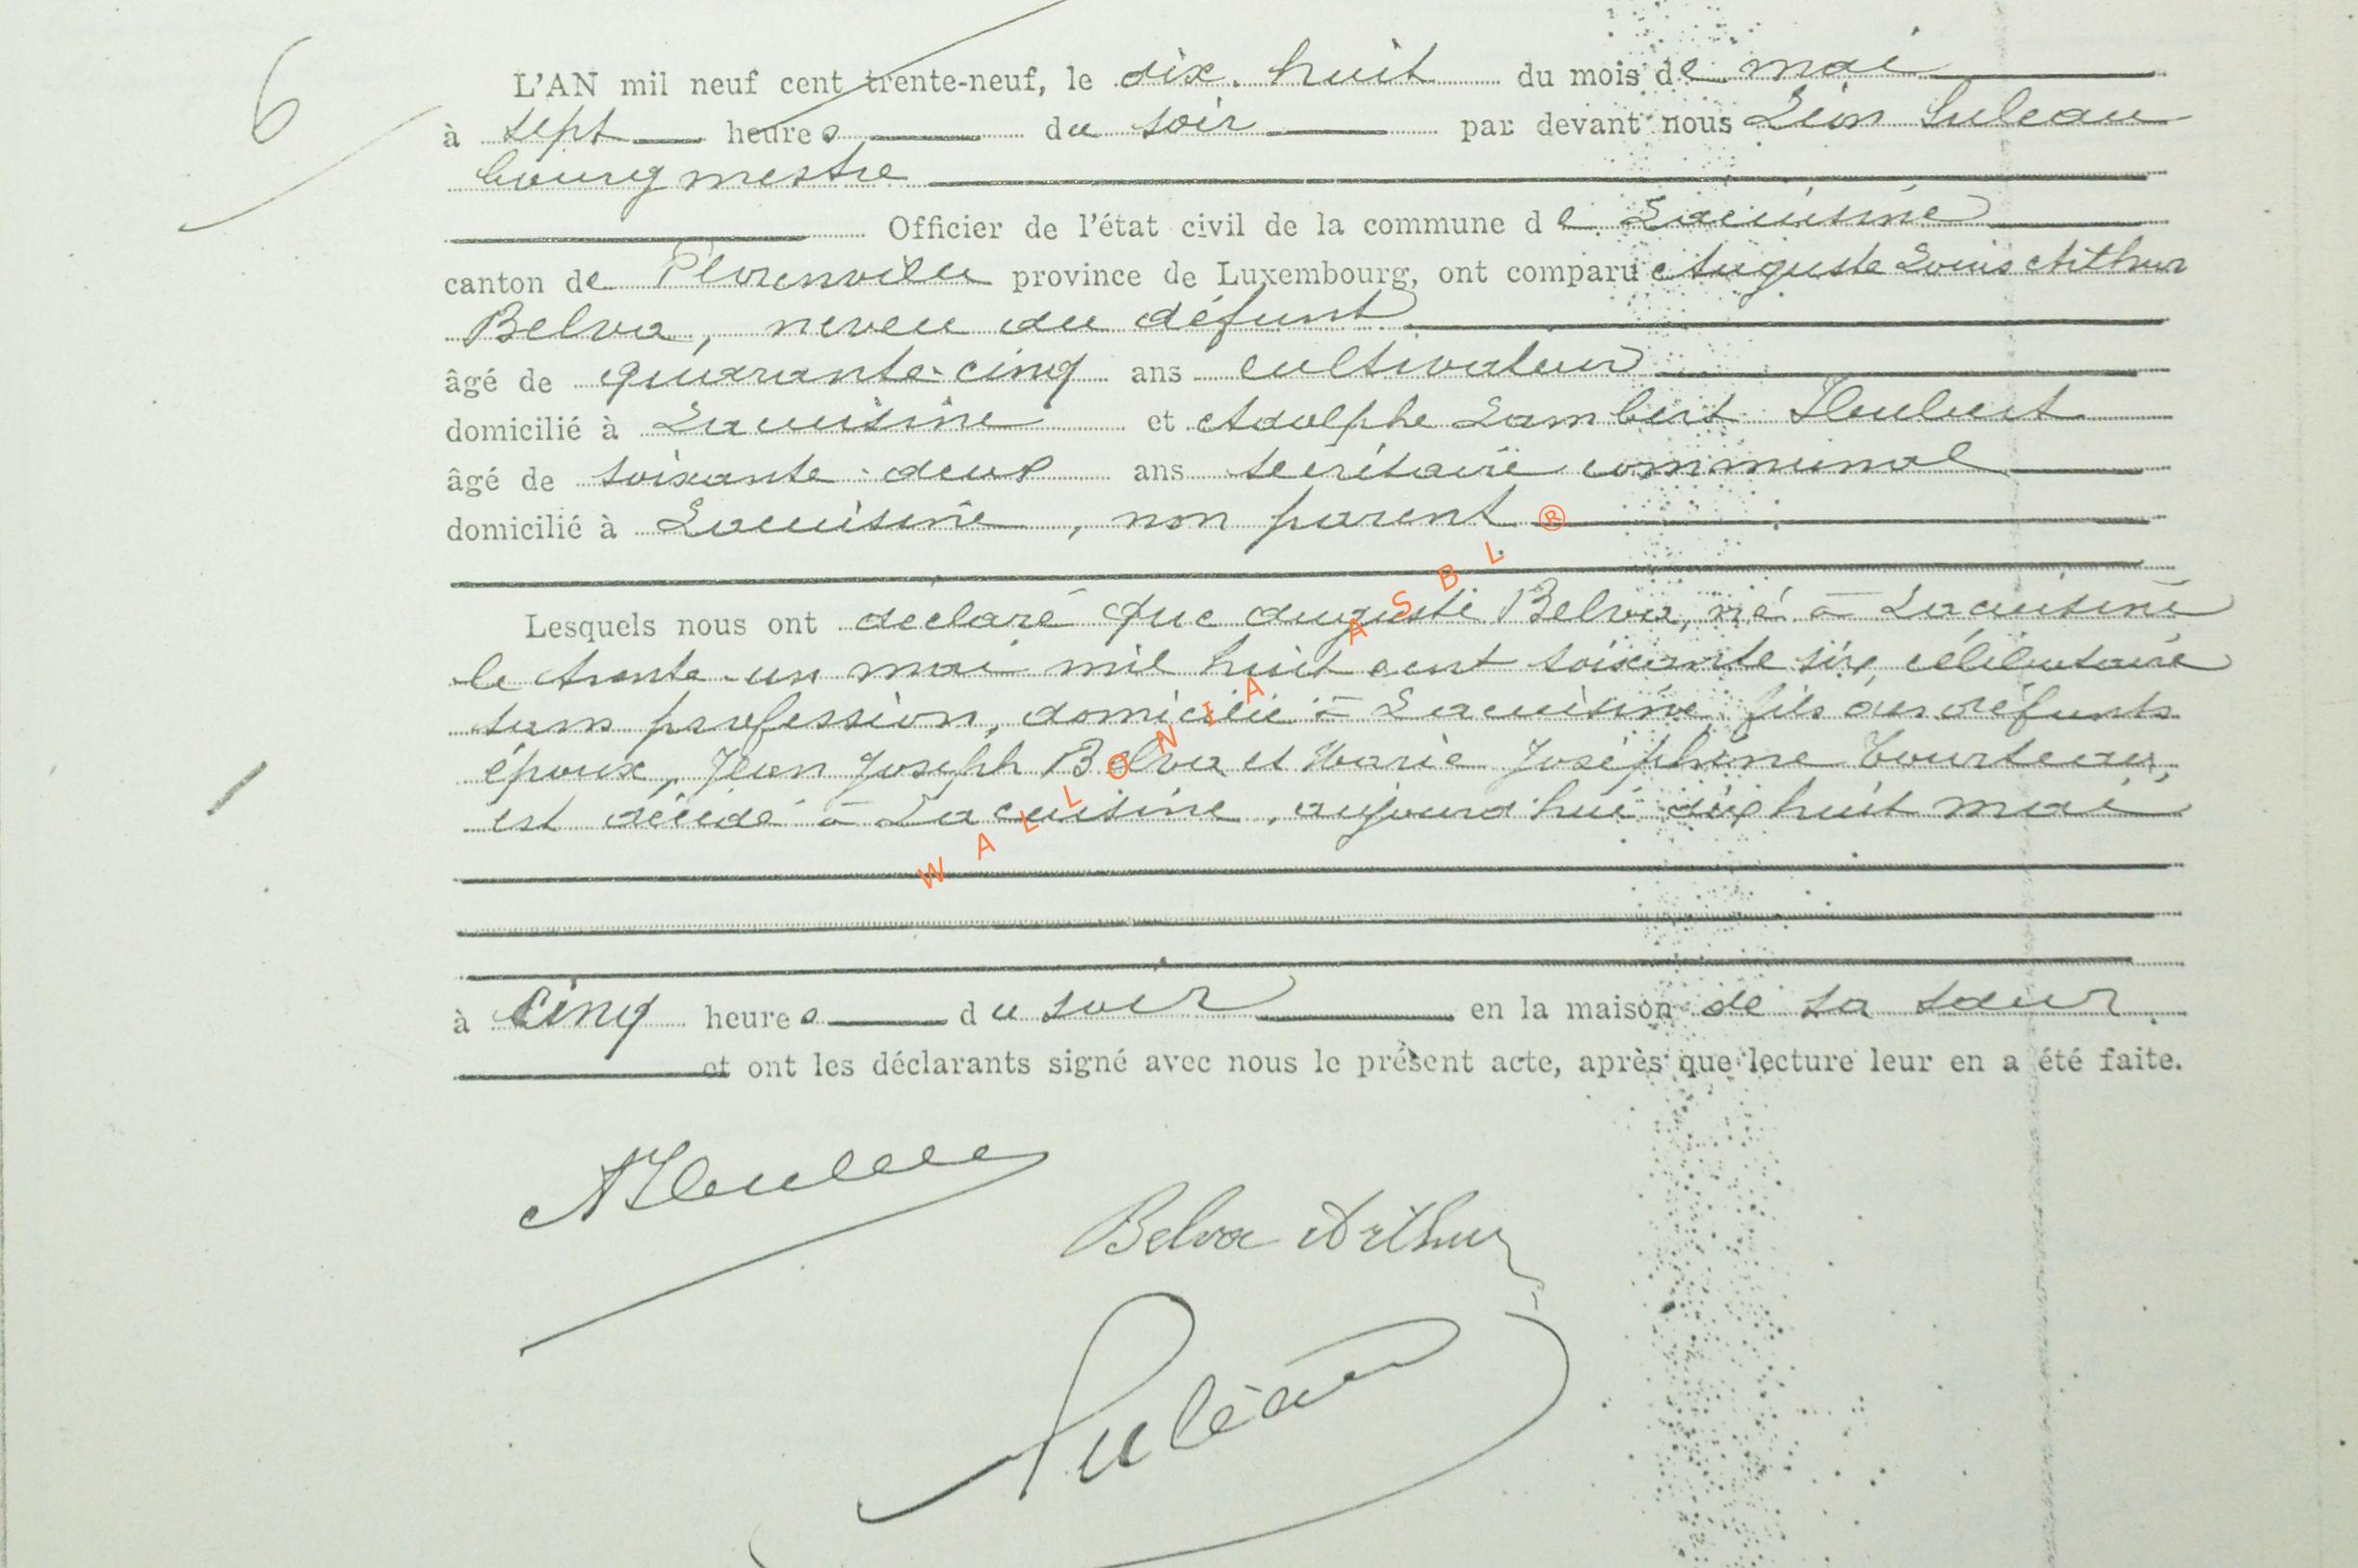 6
L'AN mil neuf cent trente-neuf, le dix-huit du mois de mai
à sept heures du soir par devant nous Léon Suleau
bourgmestre
Officier de l'état civil de la commune de Lacuisine
canton de Florenville province de Luxembourg, ont comparu Auguste Louis Arthur
Belva, neveu du défunt
âgé de quarante-cinq ans cultivateur
domicilié à Lacuisine et Adolphe Lambert Heubert
âgé de soixante-deux ans secrétaire communal
domicilié à Lacuisine, non parent
Lesquels nous ont déclaré que Auguste Belva, né à Lacuisine
le trente-un mai mil huit cent soixante six, célibataire
sans profession, domicilié à Lacuisine, fils des défunts
époux, Jean Joseph Belva et Marie Joséphine Tourteau,
est décédé à Lacuisine, aujourd'hui dix huit mai
à cinq heures du soir en la maison de sa sœur
et ont les déclarants signé avec nous le présent acte, après que lecture leur en a été faite.
Belva Arthur
Suleau
WALLONIA ASBL ®